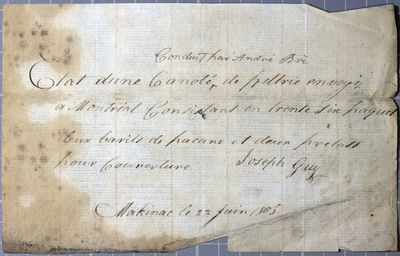 Conduit par André Bre
Etat dune Canoté, de peltrie envoyé
a Montréal Consistant en trente Six paquet
Eux barils de pacane et deux prelats
pour Couverture Joseph Guy
Makinac le 22 juin, 1805